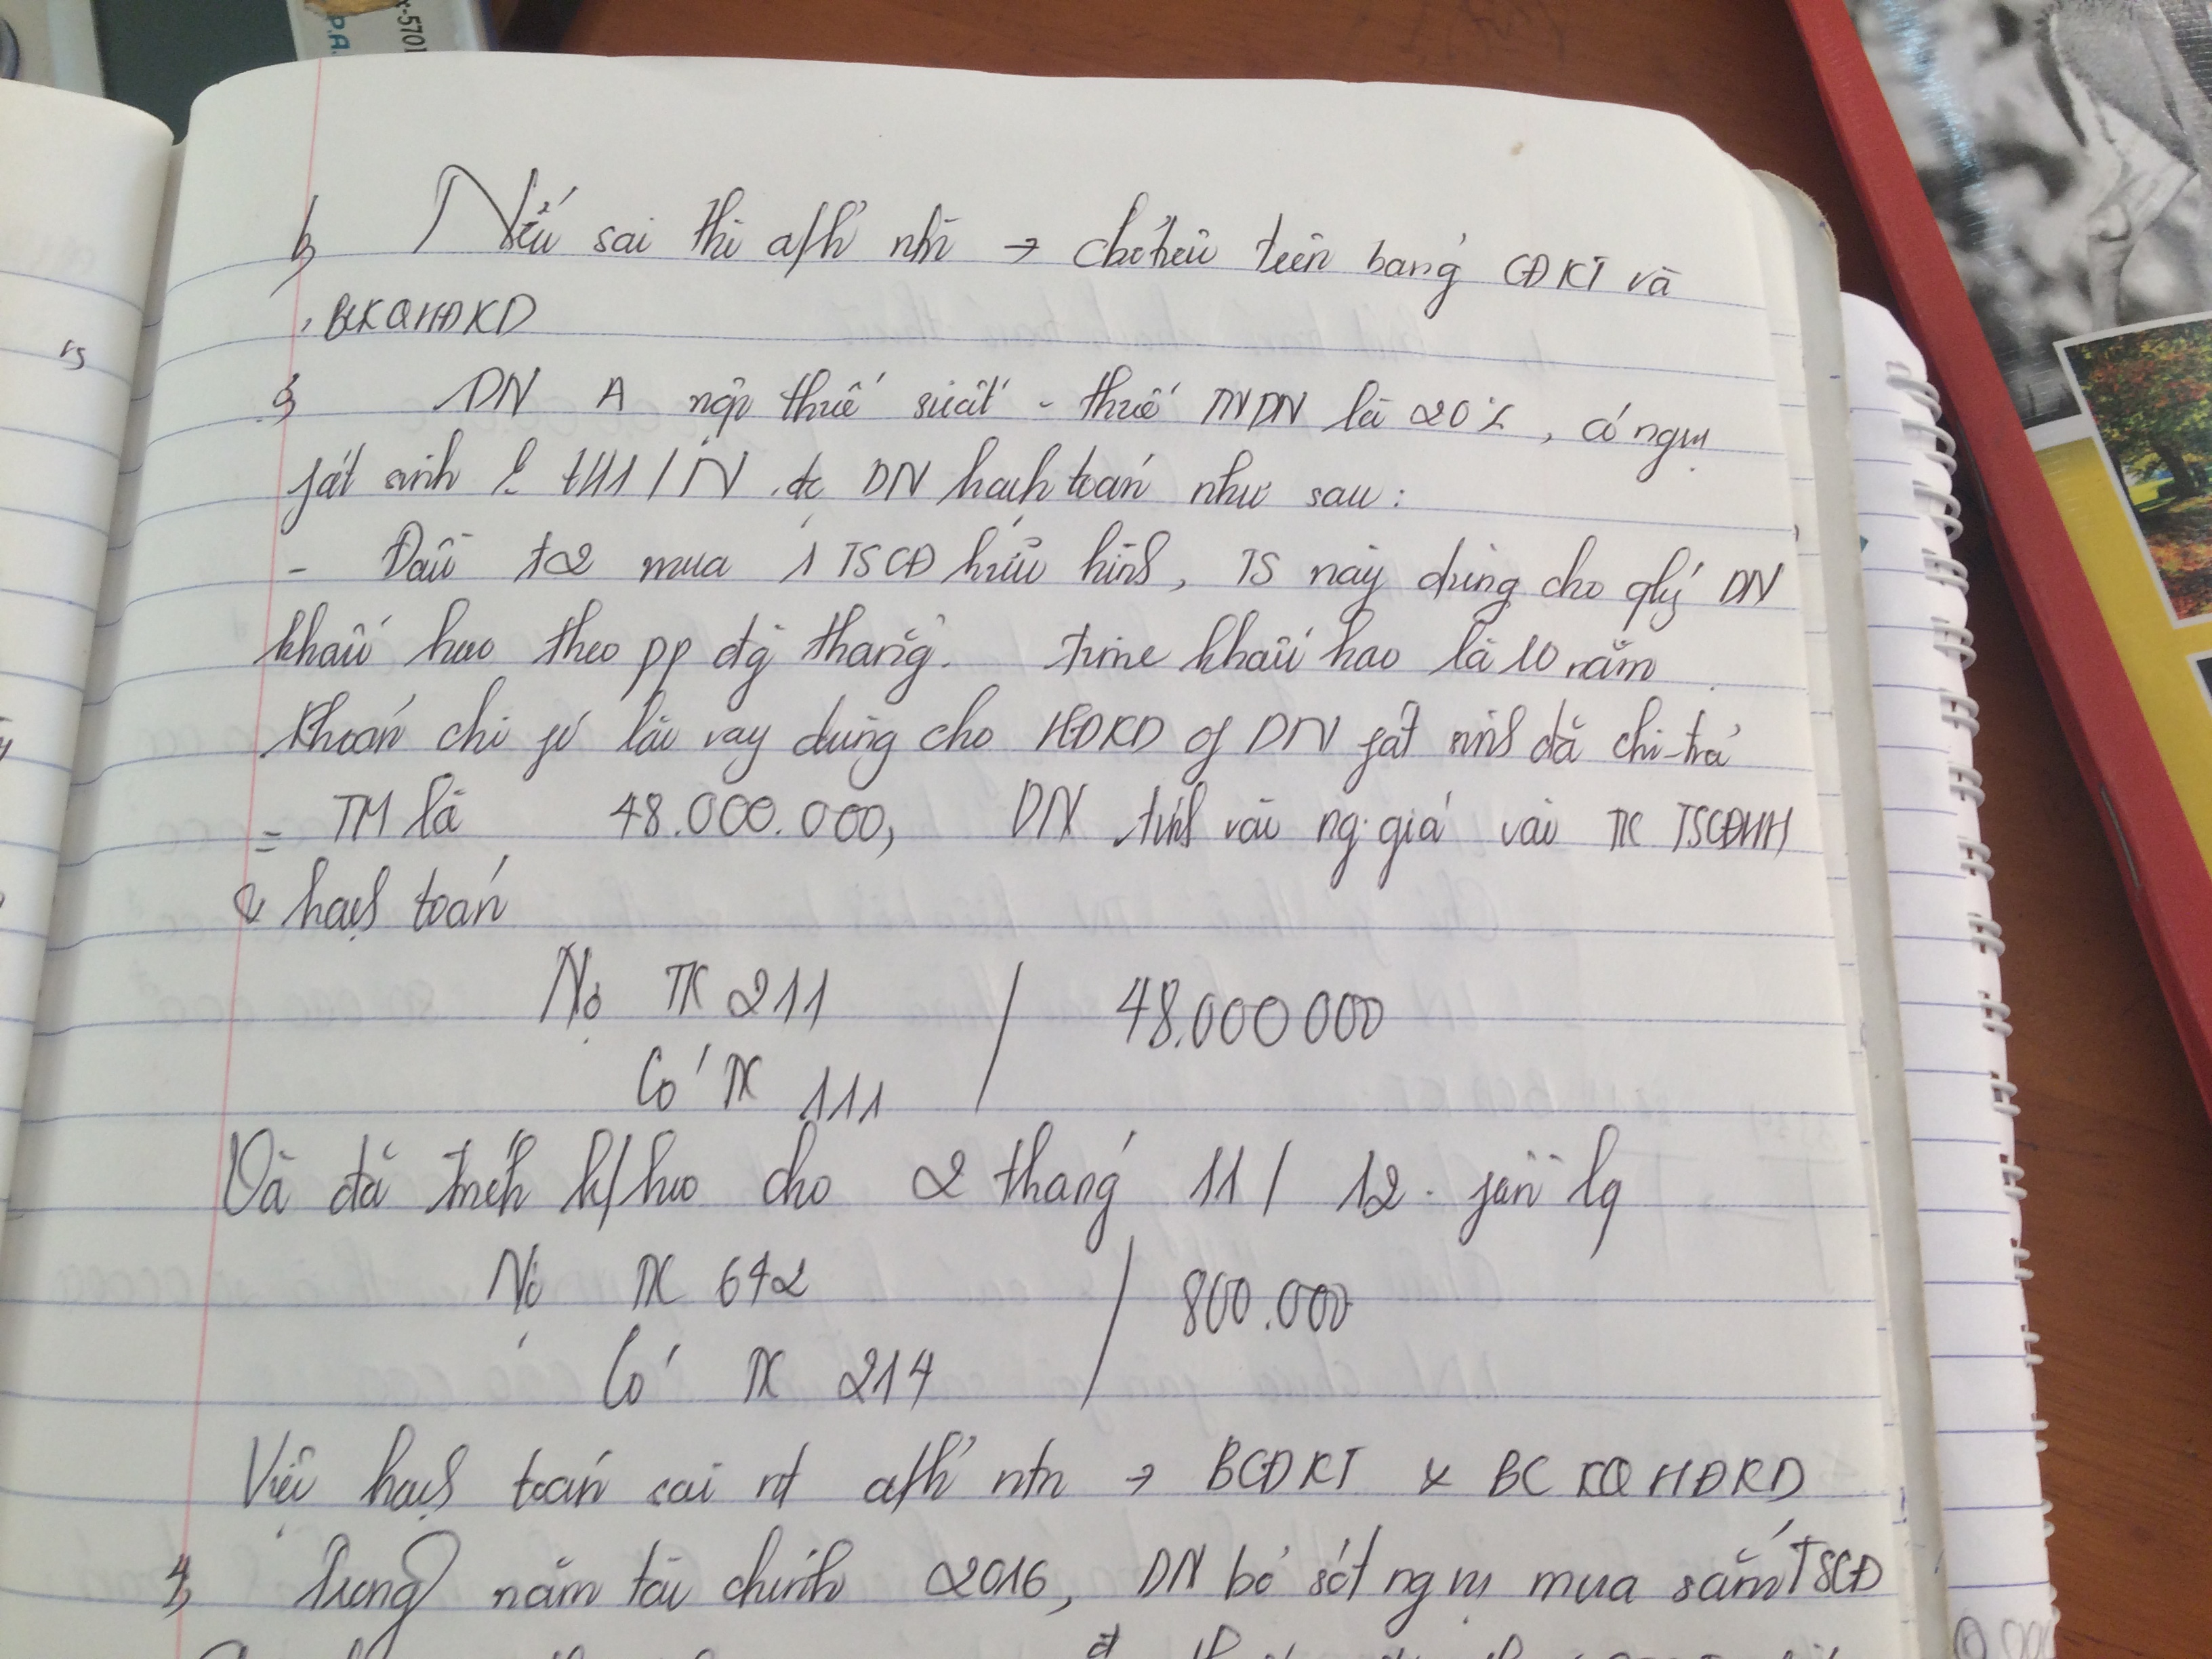 P.A.
x-570
b, Nếu sai thì a/h' ntn → chỉ tiêu trên bảng CĐKT và
BCKQHĐKD
3, DN A nộp thuế suất - thuế TNDN là 20%, có ngvụ
fát sinh t11/N đc DN hạch toán như sau:
- Đầu t2 mua 1 TSCĐ hữu hình, TS này dùng cho qlý DN
khấu hao theo pp đg thẳng. time khấu hao là 10 năm
Khoản chi fí lãi vay dùng cho HĐKD of DN fát sinh đã chi trả
= TM là 48.000.000, DN tính vào ng.giá vào TK TSCĐHH
& hạch toán
Nợ TK 211 / 48.000 000
Có TK 111
Và đã trích k/hao cho 2 tháng 11/ 12.
Nợ TK 642 / 800.000
Có TK 214
Việc hạch toán sai a/h' ntn → BCĐKT & BC KQHĐKD
4, Trong năm tài chính 2016, DN bỏ sót ngvụ mua sắm TSCĐ